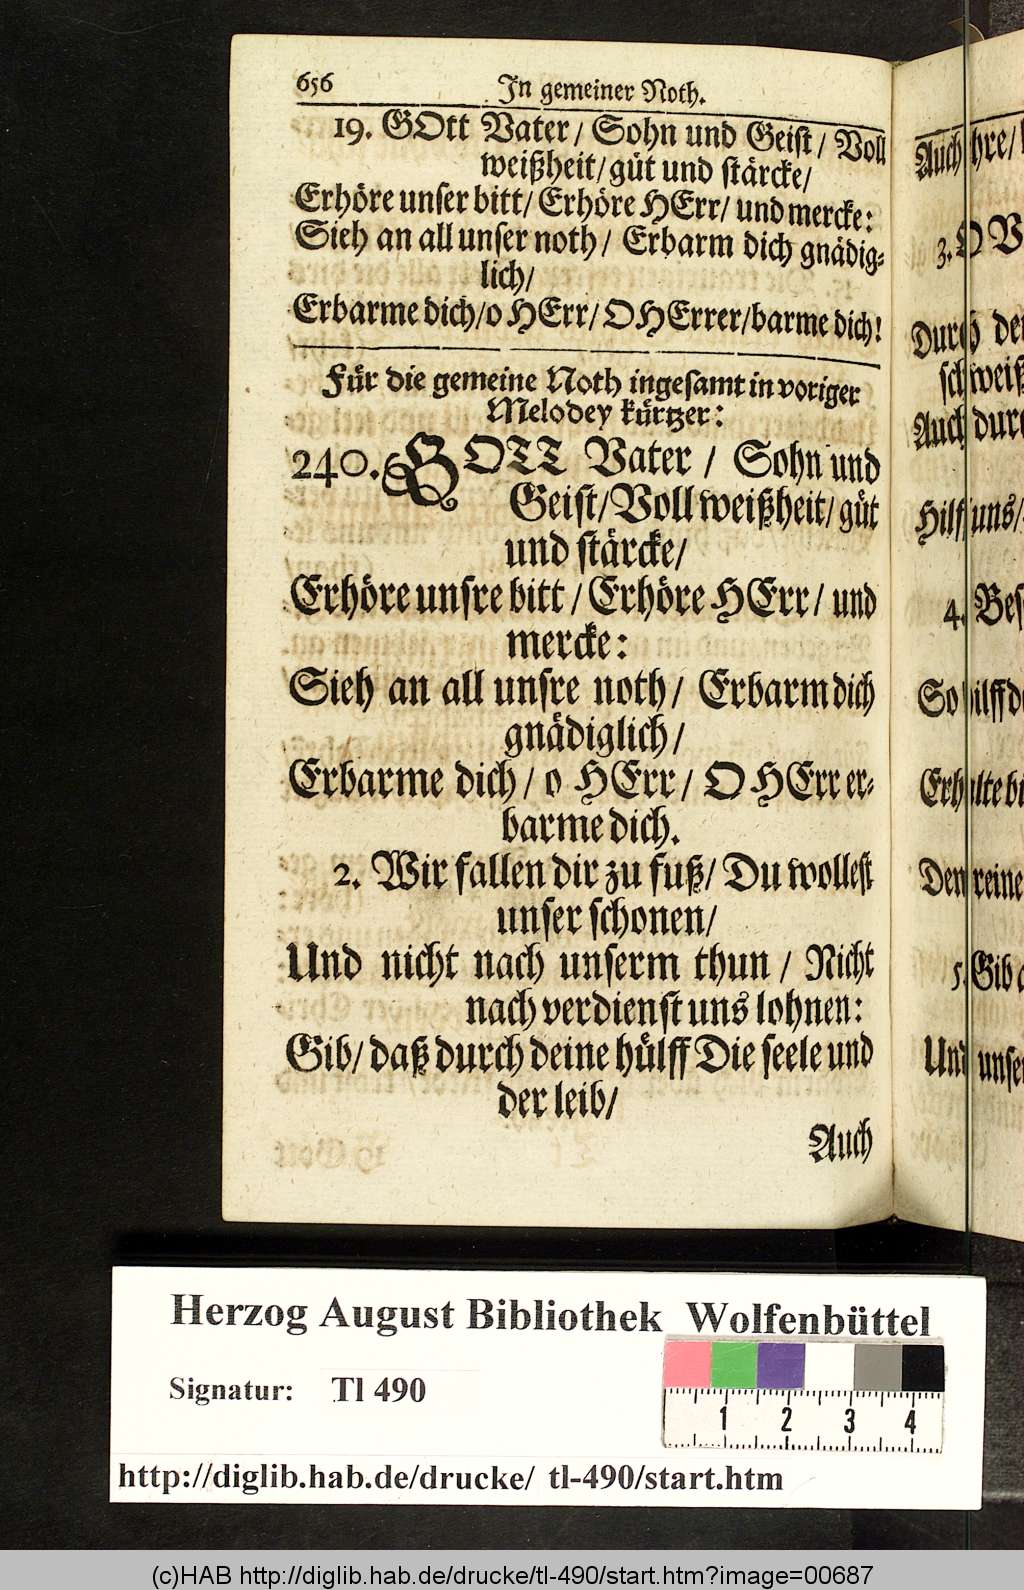 656
In gemeiner Noth.
19. GOtt Vater / Sohn und Geist / Voll
weißheit / güt und stärcke /
Erhöre unser bitt / Erhöre HErr / und mercke:
Sieh an all unser noth / Erbarm dich gnädig-
lich /
Erbarme dich / o HErr / O HErrer / barme dich!
Für die gemeine Noth ingesamt in voriger
Melodey kürtzer:
240. GOTT Vater / Sohn und
Geist / Voll weißheit / güt
und stärcke /
Erhöre unsre bitt / Erhöre HErr / und
mercke:
Sieh an all unsre noth / Erbarm dich
gnädiglich /
Erbarme dich / o HErr / O HErr er-
barme dich.
2. Wir fallen dir zu fuß / Du wollest
unser schonen /
Und nicht nach unserm thun / Nicht
nach verdienst uns lohnen:
Gib / daß durch deine hülff Die seele und
der leib /
Auch
Auch
3. O
Durch
schweiß
Auch
Hilff uns /
4.
So hilff
Erhalte
Den reine
5. Gib
Und
Herzog August Bibliothek Wolfenbüttel
Signatur: Tl 490
1 2 3 4
http://diglib.hab.de/drucke/ tl-490/start.htm
(c)HAB http://diglib.hab.de/drucke/tl-490/start.htm?image=00687